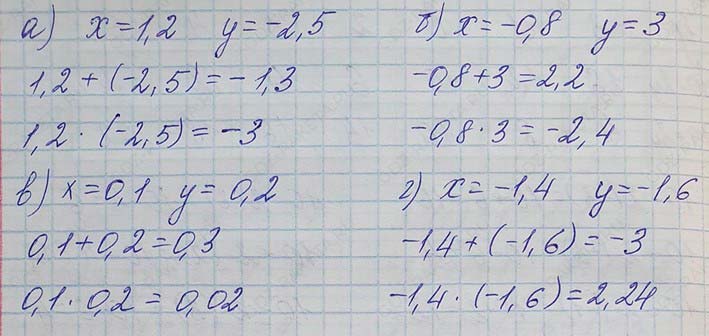 а) x=1,2 y=-2,5
1,2+(-2,5)=-1,3
1,2·(-2,5)=-3
б) x=-0,8 y=3
-0,8+3=2,2
-0,8·3=-2,4
в) x=0,1 y=0,2
0,1+0,2=0,3
0,1·0,2=0,02
г) x=-1,4 y=-1,6
-1,4+(-1,6)=-3
-1,4·(-1,6)=2,24